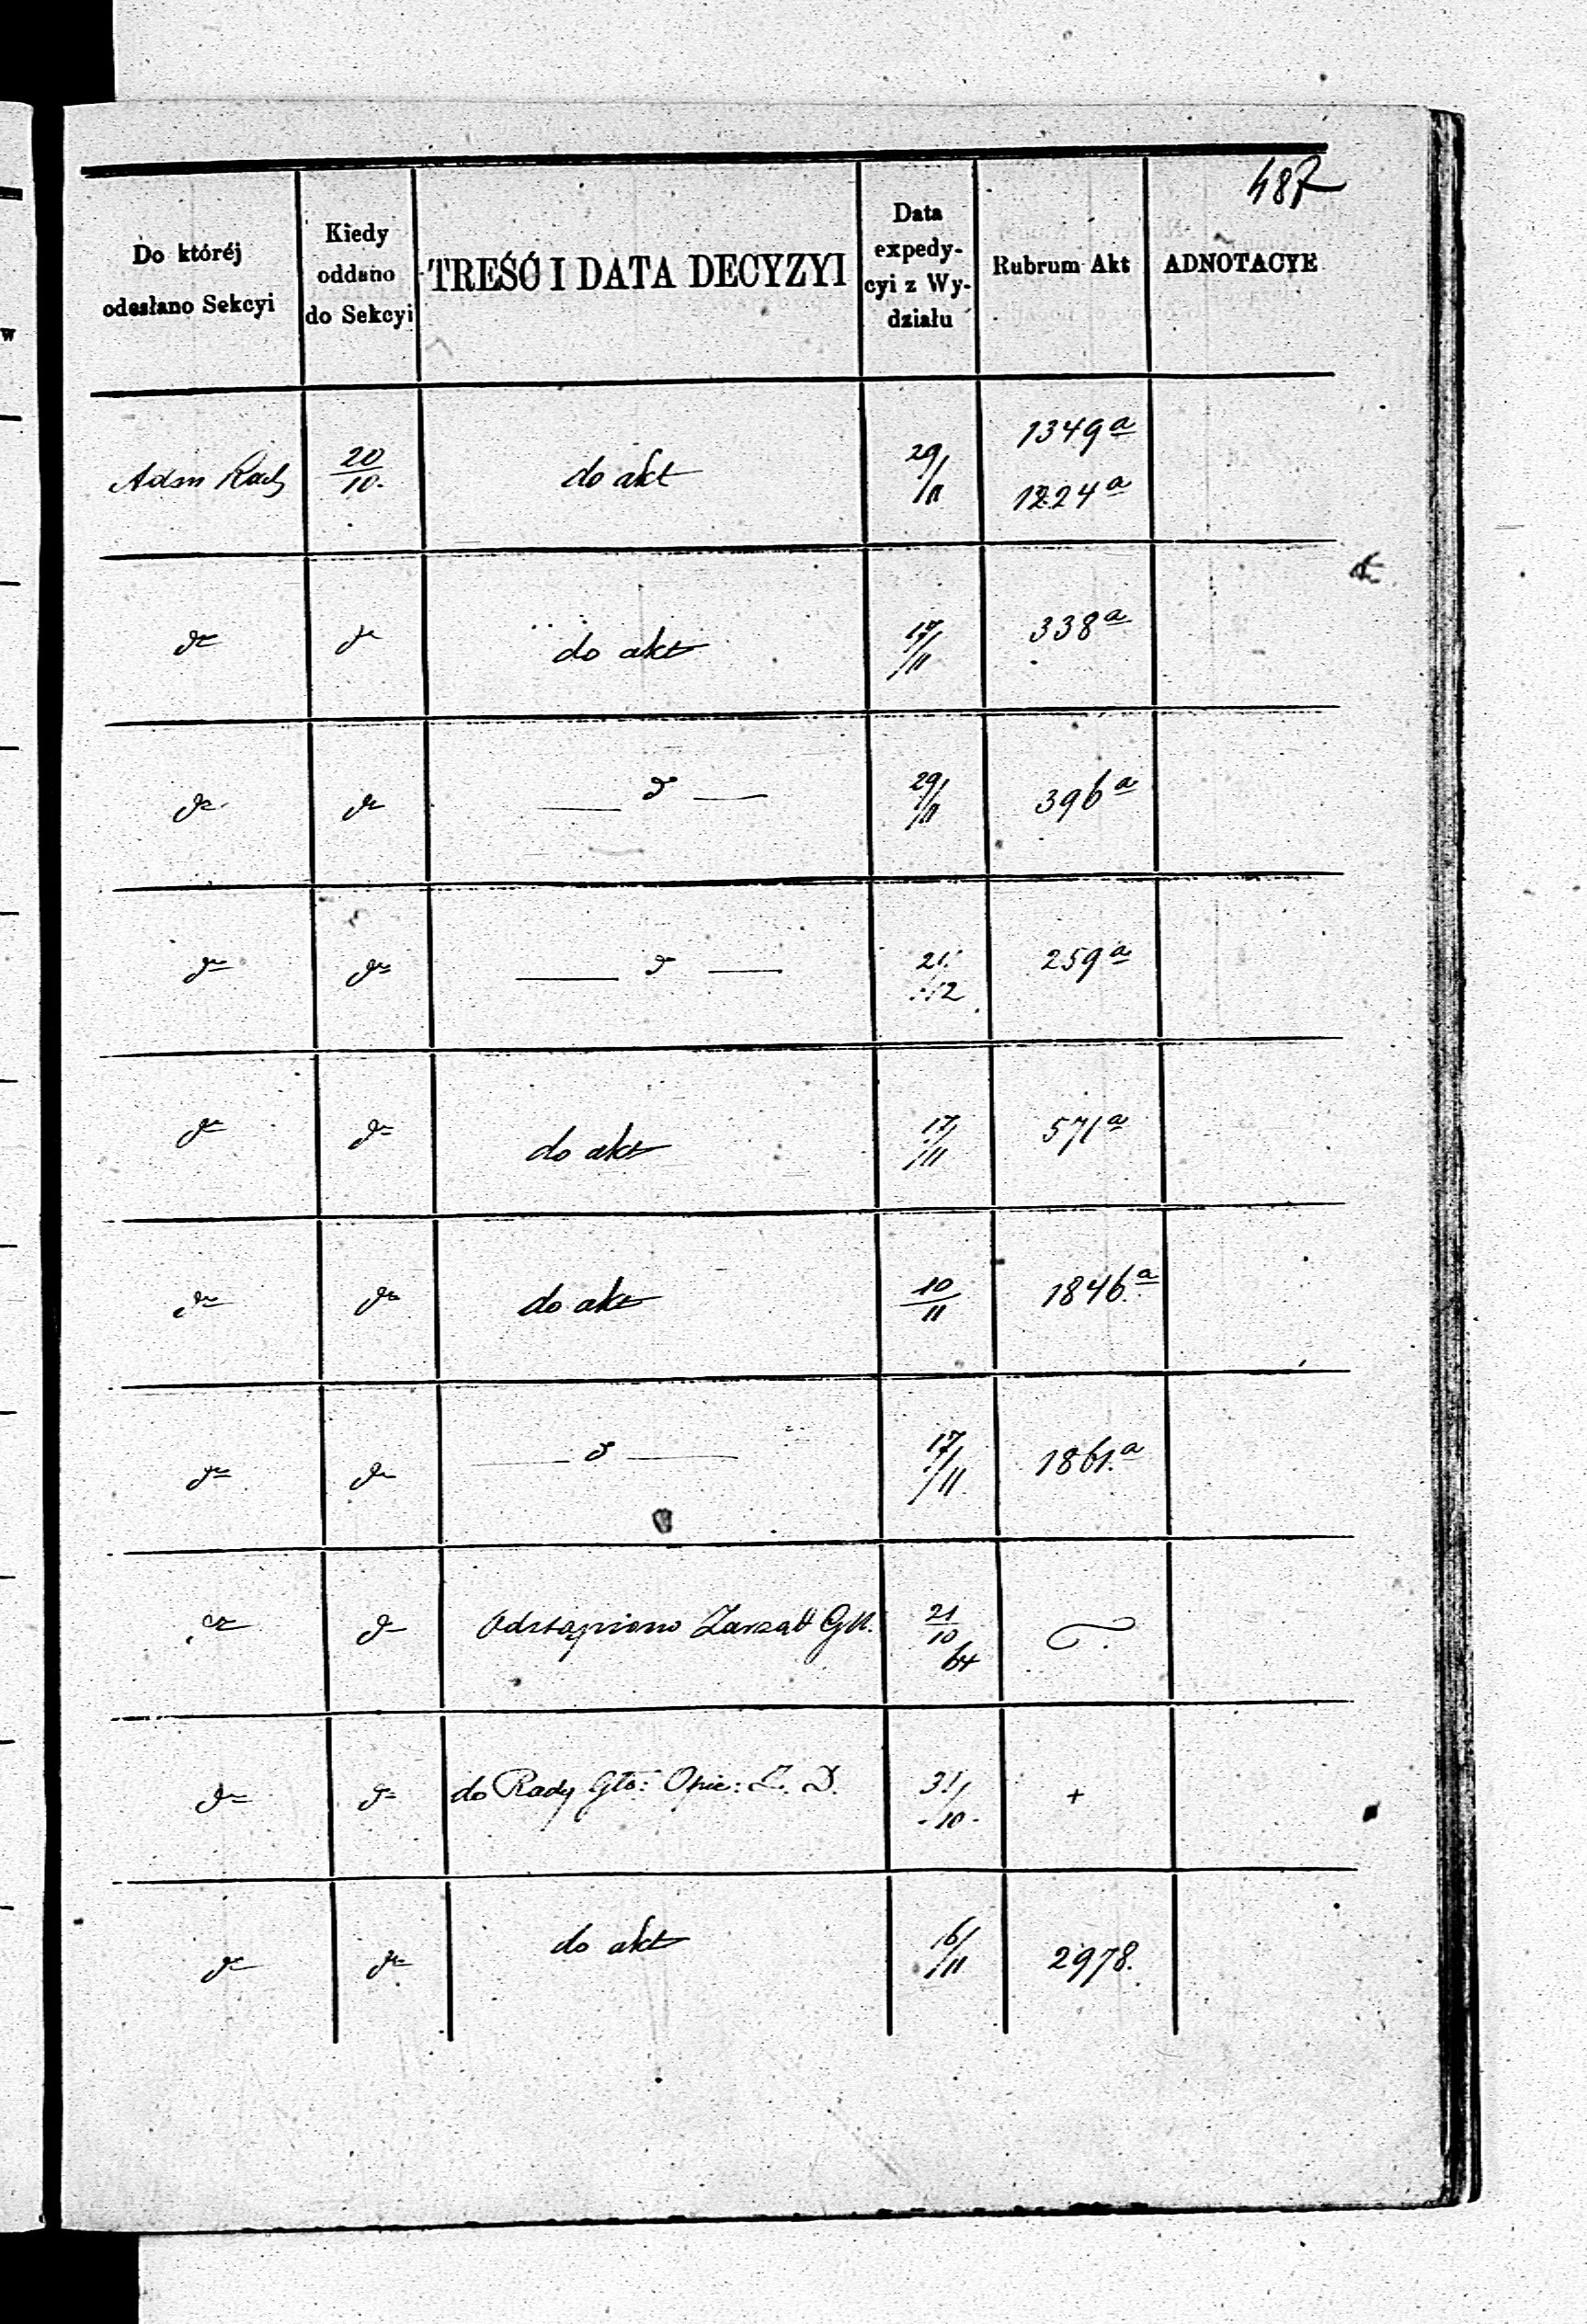 487
Do któréj odesłano Sekcyi
Kiedy oddano do Sekcyi
TREŚĆ I DATA DECYZYI
Data expedycyi z Wydziału
Rubrum Akt
ADNOTACYE
Adm 20/10. do akt 29/11 1349a
1224a
do do do akt 17/11 338a
do do — do — 29/11 396a
do do — do — 21/12 259a
do do do akt 17/11 571a
do do do akt 10/11 1846.a
do do — do — 17/11 1861.a
do do Odstąpiono Zarząd 21/10 64
do do do Rady Głó: Opie: Z. D. 31/10 +
do do do akt 16/11 2978.